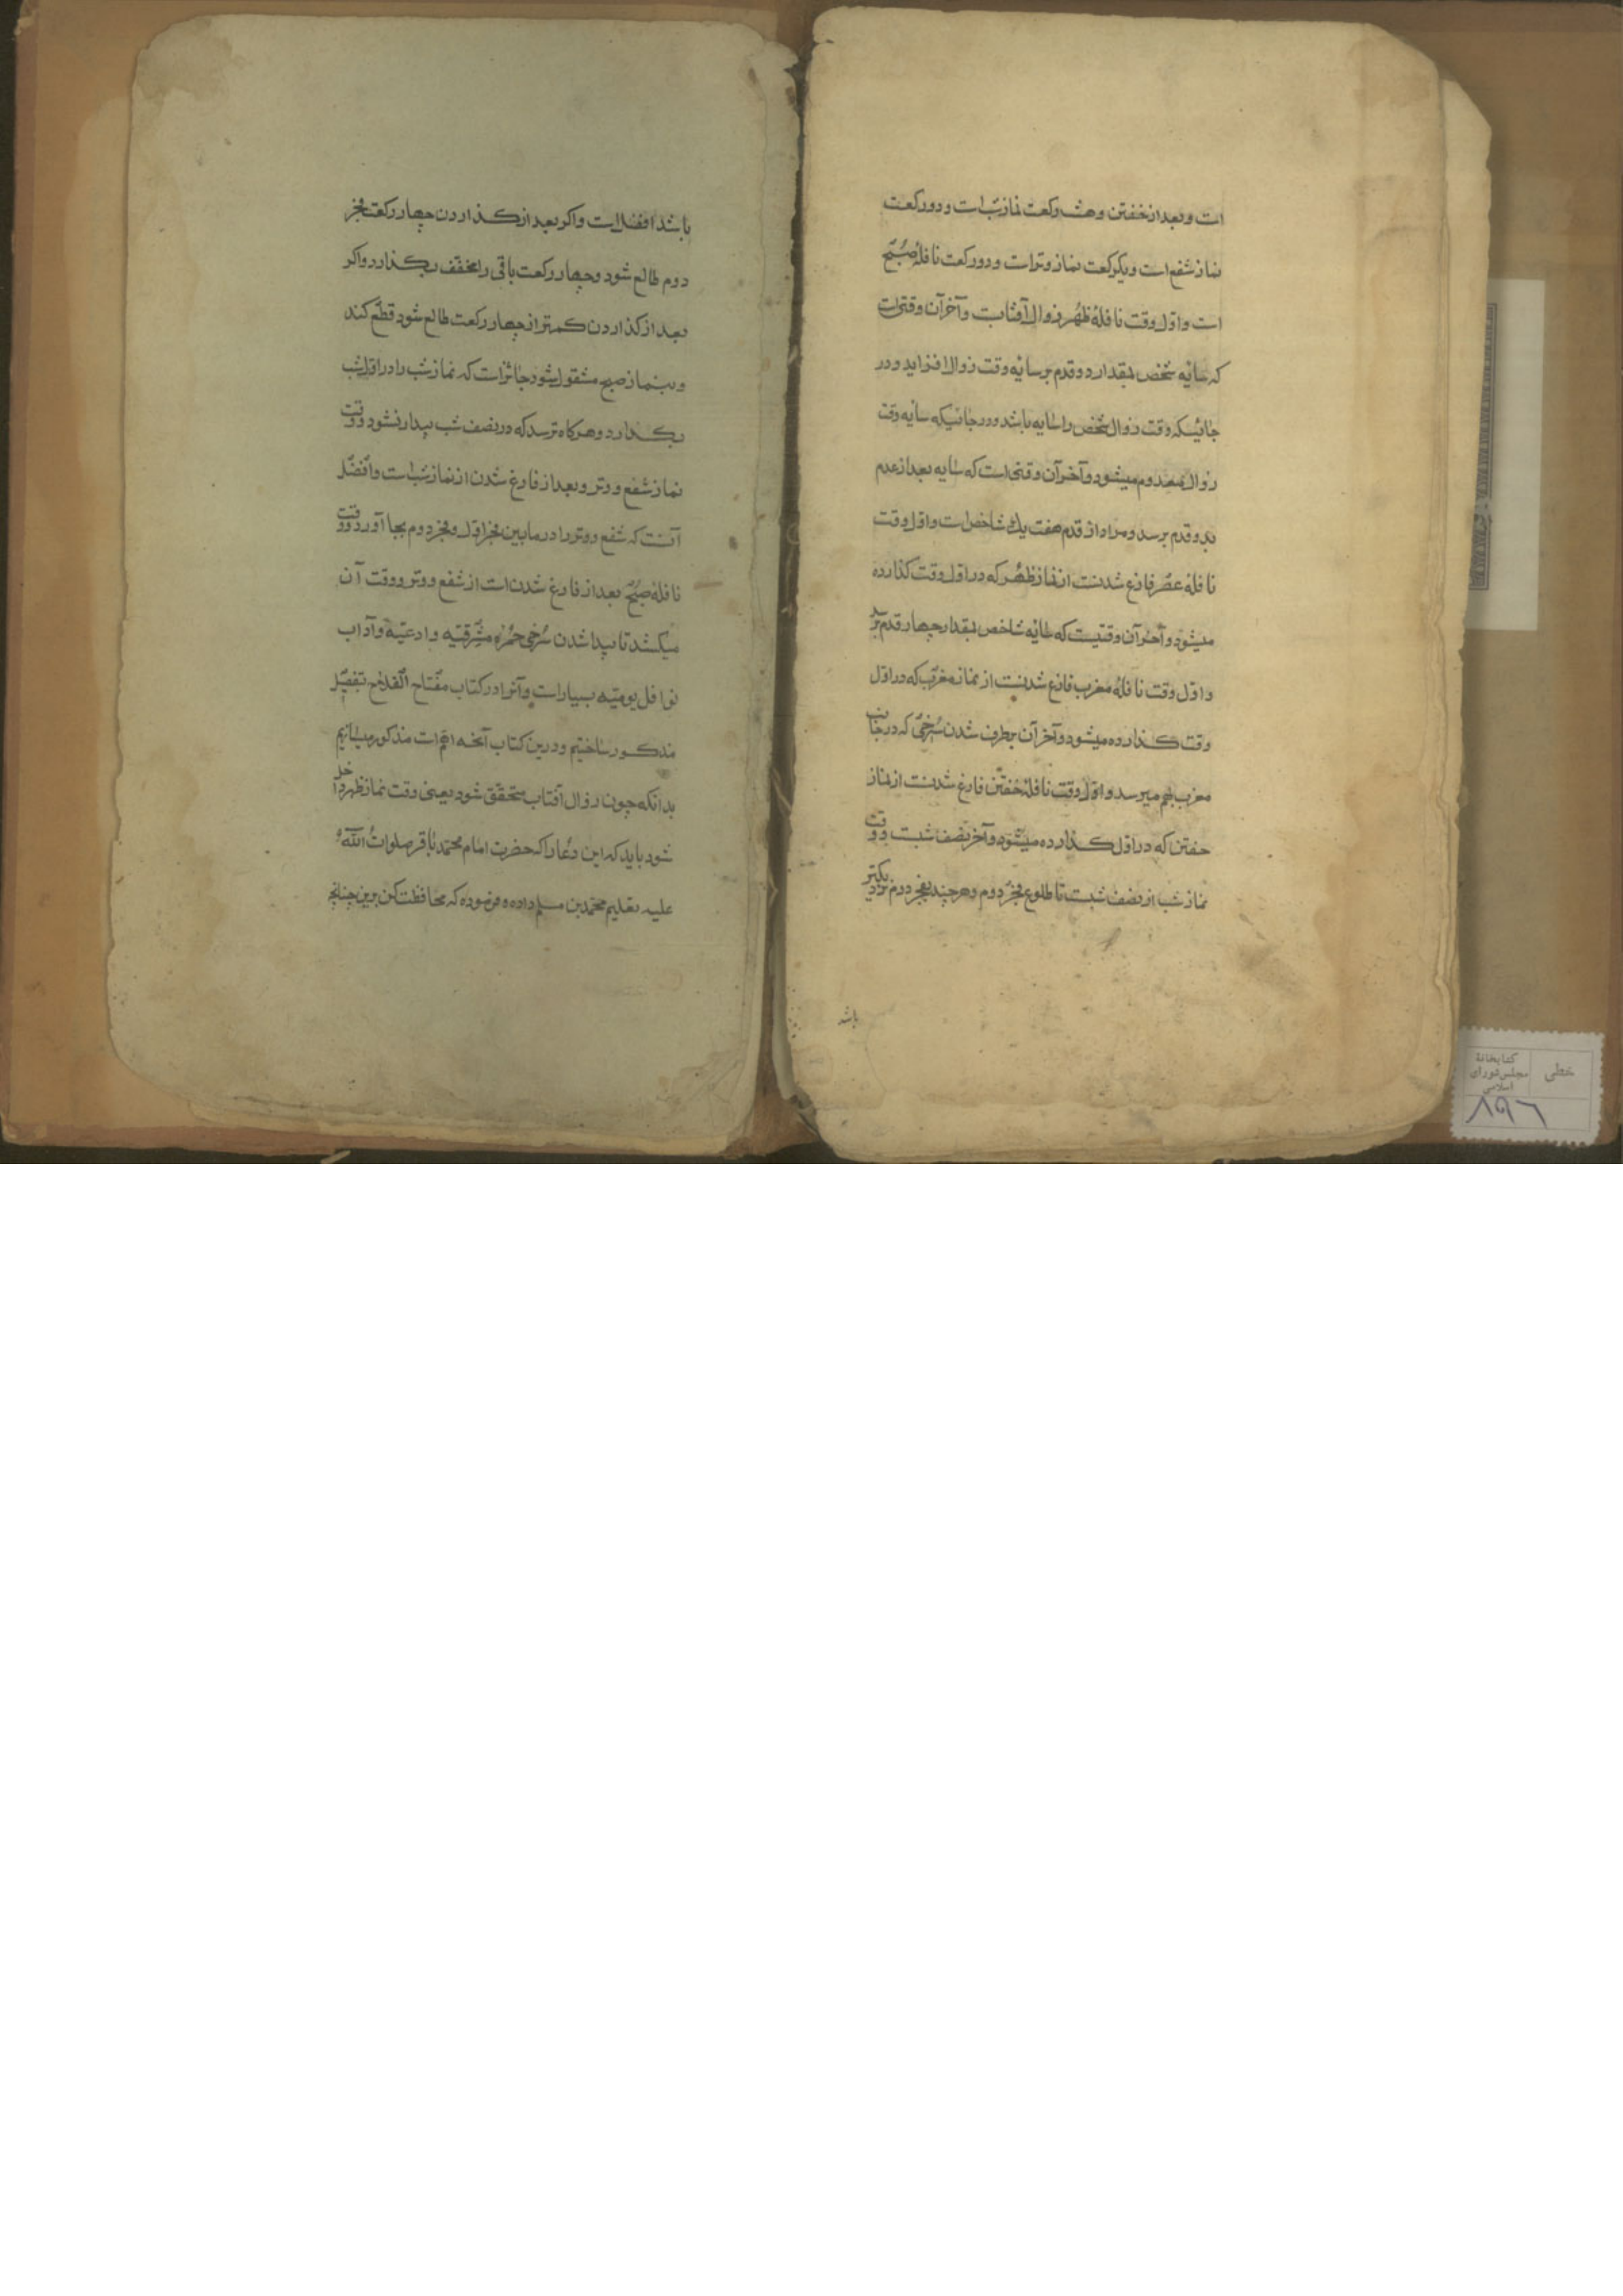 است و بعد از خفتن و هشت رکعت نماز شب است و دو رکعت
نماز شفع است و یکرکعت نماز وتر است و دو رکعت نافلهٔ صبح
است و اوّل وقت نافلهٔ ظهر زوال آفتابست و آخر آن وقتی است
که سایه شخص بقدار دو قدم بر سایه وقت زوال افزاید و در
جائیکه وقت زوال شخص را سایه باشد و در جائیکه سایه وقت
زوال معدوم میشود و آخر آن وقتی است که سایه بعد از عدم
بدو قدم برسد و مراد از قدم هفت یک شاخص است و اوّل وقت
نافلهٔ عصر فارغ شدنست از نماز ظهر که در اوّل وقت کذارده
میشود و آخر آن وقتیست که سایه شاخص بقدار چهار قدم برسد
و اوّل وقت نافلهٔ مغرب فارغ شدنست از نماز مغرب که در اوّل
وقت کذارده میشود و آخر آن برطرف شدن سُرخی که در جانب
مغرب بهم میرسد و اوّل وقت نافلهٔ خفتن فارغ شدنست از نماز
خفتن که در اوّل کذارده میشود و آخر نصف شبست و وقت
نماز شب از نصف شبست تا طلوع فجر دوم و هرچند بفجر دوم نزدیکتر
باشد
باشد افضل است و اکر بعد از کذاردن چهار رکعت فجر
دوم طالع شود و چهار رکعت باقی را مخفّف بکذارد و اکر
بعد از کذاردن کمتر از چهار رکعت طالع شود قطع کند
و بنماز صبح مشغول شود جائز است که نماز شب را در اوّل شب
بکذارد و هرکاه ترسد که در نصف شب بیدار نشود و وقت
نماز شفع و وتر و بعد از فارغ شدن از نماز شب است و افضل
آنست که شفع و وتر را در مابین فجر اوّل و فجر دوم بجا آورد و وقت
نافلهٔ صبح بعد از فارغ شدن است از شفع و وتر و وقت آن
میکشد تا پیدا شدن سُرخی حُمرهٔ مشرقیّه و ادعیّه و آداب
نوافل یومیّه بسیار است و آنرا در کتاب مفتاح الفلاح تفصیل
مذکور ساختیم و درین کتاب آنچه اهمّ است مذکور میسازیم
بدانکه چون زوال آفتاب متحقّق شود یعنی وقت نماز ظهر داخل
شود باید که این دعا را که حضرت امام محمّد باقر صلوات اللّه
علیه تعلیم محمّد بن مسلم داده و فرموده که محافظت کن برین چنانچه
خطی
کتابخانهٔ
مجلس شورای
اسلامی
۸۵۹۶